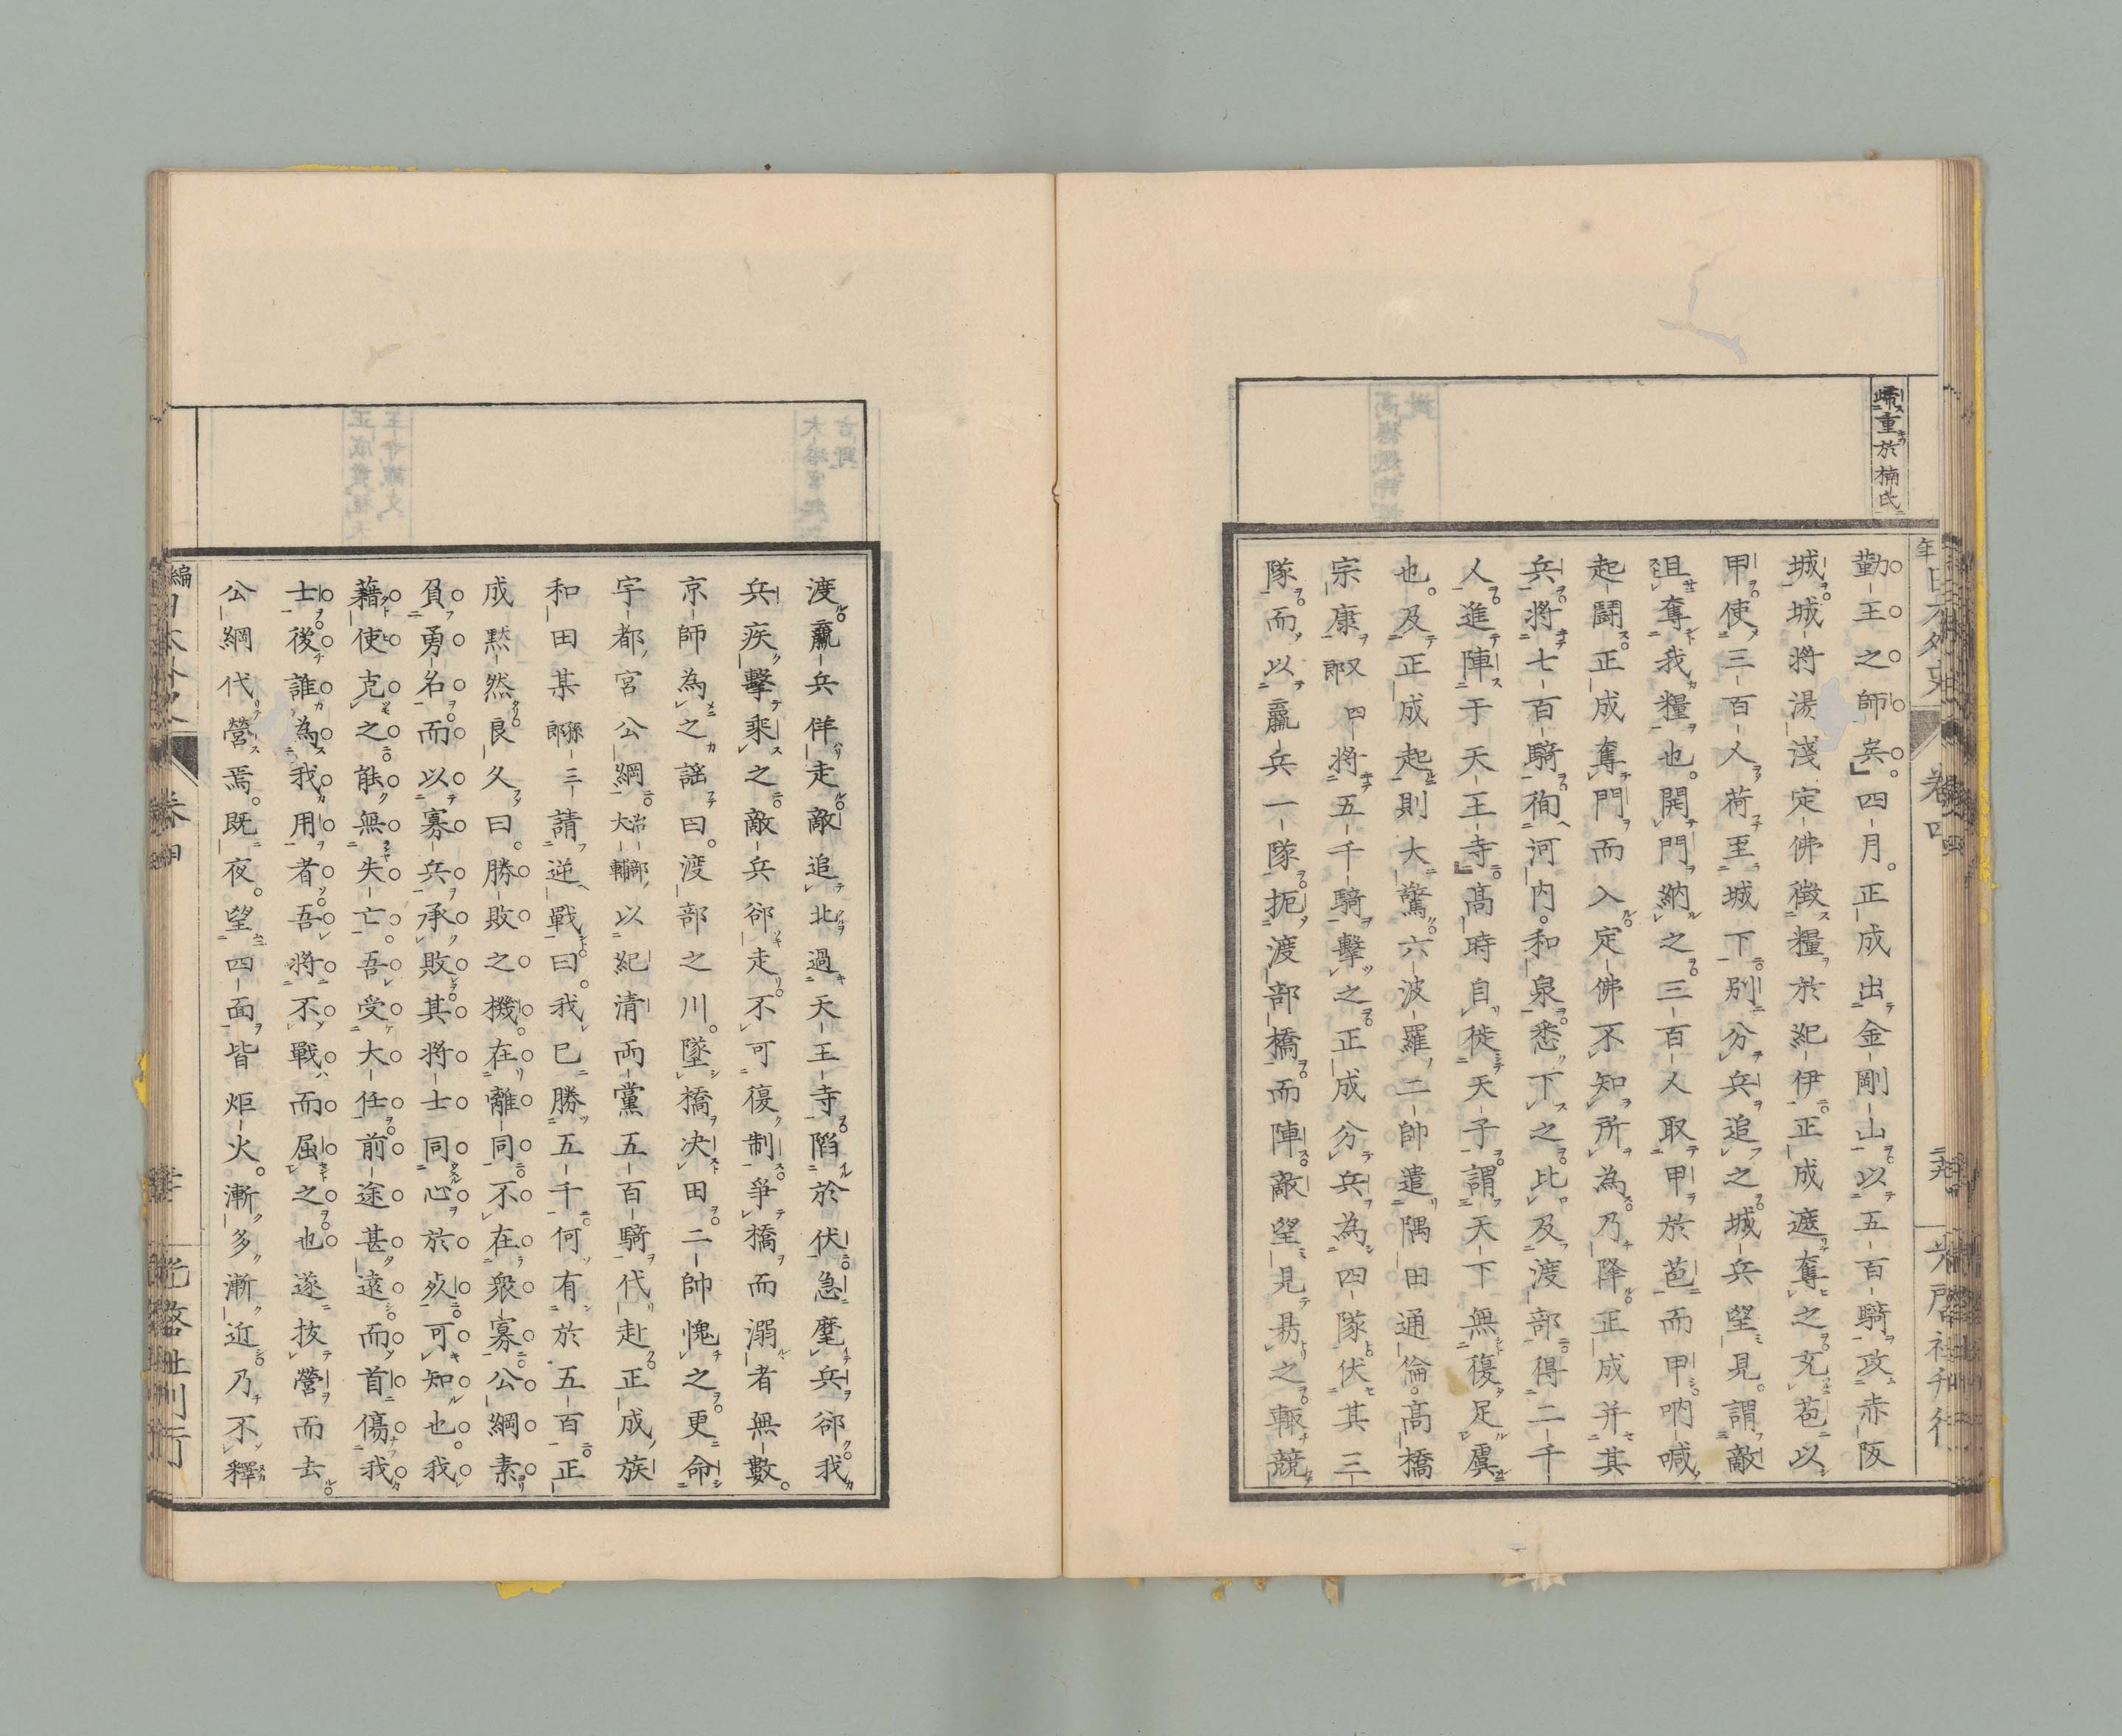 歸重於楠氏
勤王之師矣。四月。正成出金剛山。以五百騎攻赤阪
城。城將湯淺定佛徵糧於紀伊。正成遮奪之充苞以
甲。使三百人荷至城下。別分兵追之。城兵望見。謂敵
且奪我糧也。開門納之。三百人取甲於苞而甲。吶喊
起鬪。正成奪門而入。定佛不知所為。乃降。正成并其
兵。將七百騎。徇河內。和泉。悉下之。比及渡部。得二千
人。進陣于天王寺。高時自徙天子。謂天下無復足虞
也。及正成起。則大驚。六波羅二帥遣隅田通倫。高橋
宗康四郎又將五千騎擊之。正成分兵為四隊。伏其三
隊。而以羸兵一隊。扼渡部橋。而陣。敵望見易之。輙競
渡。羸兵佯走。敵追北過天王寺。陷於伏。急麾兵郤。我
兵疾擊乘之。敵兵郤走。不可復制。爭橋而溺者無數。
京師為之謠曰。渡部之川。墜橋決田。二帥愧之。更命
宇都宮公綱治部大輔以紀清両黨五百騎代赴。正成族
和田某孫三郎請逆戰。曰。我已勝五千。何有於五百。正
成默然良久曰。勝敗之機。在離同。不在衆寡。公綱素
負勇名。而以寡兵承敗。其將士同心於死。可知也。我
藉使克之。能無失亡。吾受大任。前途甚遠。而首傷我
士。後誰為我用者。吾將不戰而屈之也。遂拔營而去。
公綱代營焉。既夜。望四面皆炬火。漸多漸近。乃不釋
卷四